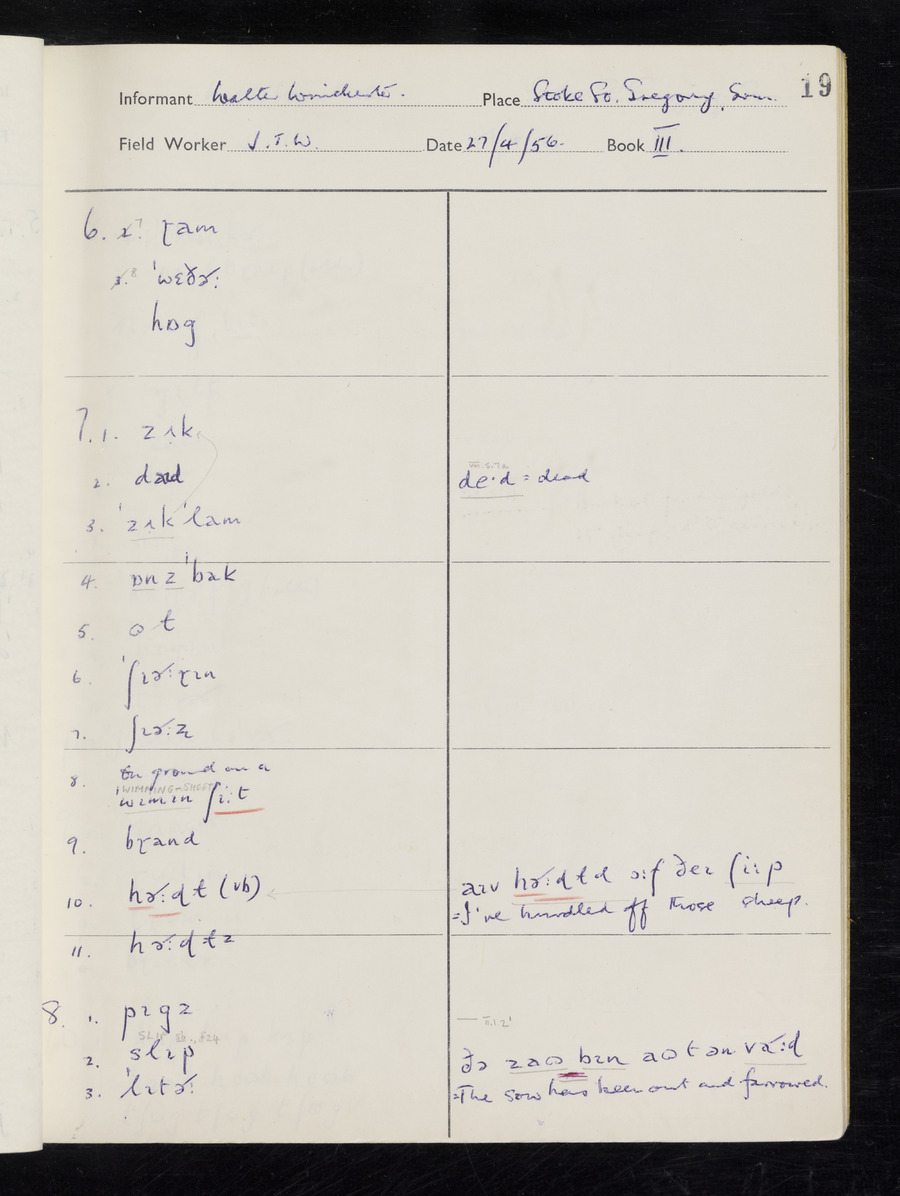 19
Informant Walter Winchester. Place Stoke St. Gregory, Som.
Field Worker J.T.W. Date 27/4/56. Book III.
6. 7. ɽam
8 'wɛðɚ:
hɒg
7. 1. zʌk
2. dad
VIII.5.7a
de·d = dead
3. 'zʌk'lam
4. ɒnz'bak
5. ɷt
6. 'ʃɪɚ:ɽɪn
7. ʃɪɚ:z
8. tn ground on a
WIMMING-SHEET
'wɪmɪn ʃi:t
9. bɽand
10. hɚ:dɫ (vb)
aɪv hɚ:dɫd ɔ:f ðeɪ ʃi:p
=I've hurdled off those sheep.
11. hɚ:dɫz
8. 1. pɪgz
2. slɪp
ðə zaɷ bɪn aɷt ən va:d
3. 'lɪtɚ:
=The sow has been out and farrowed.